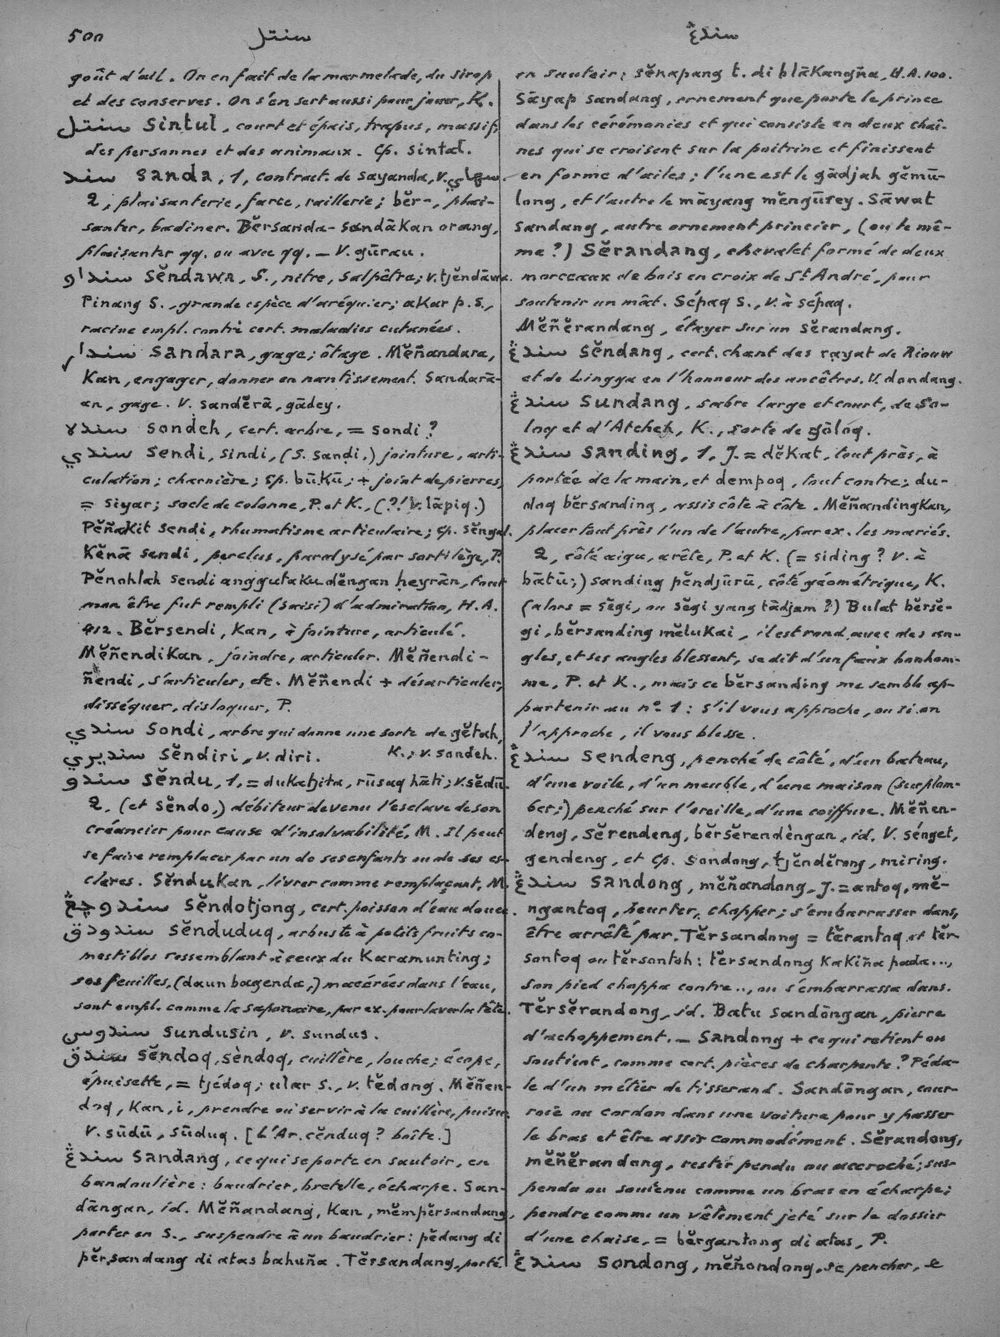 500
سنتل
سندڠ
goût d'ail. On en fait de la marmelade, du sirop
et des conserves. On s'en sert aussi pour jouer, K.
سنتل sintul, court et épais, trapus, massif,
des personnes et des animaux. Cp. sintal.
سند sanda, 1, contract. de sayanda, v.
2, plaisanterie, farce, raillerie; bĕr-, plai-
santer, badiner. Bĕrsanda-sandākan orang,
plaisanter qq. ou avec qq. — V. gūrau.
سنداو sĕndawa, S., nitre, salpêtre; v. tjĕndāwa.
Pinang S., grande espèce d'aréquier; akar p. S.,
racine empl. contre cert. maladies cutanées.
سندار sandara, gage; ôtage. Mĕñandara,
kan, engager, donner en nantissement. Sandarā-
an, gage. V. sandĕrā, gādey.
سنده sondeh, cert. arbre, = sondi?
سندي sendi, sindi, (S. sandi,) jointure, arti-
culation; charnière; cp. būkū; + joint de pierres,
= siyar; socle de colonne, P. et K., (?! v. lāpiq.)
Pĕñakit sendi, rhumatisme articulaire; cp. sĕngal.
Kĕnā sendi, perclus, paralysé par sortilège, P.
Pĕnohlah sendi anggutaku dĕngan heyrān, tout
mon être fut rempli (saisi) d'admiration, H.A.
412. Bĕrsendi, kan, à jointure, articulé.
Mĕñendikan, joindre, articuler. Mĕñendi-
ñendi, s'articuler, etc. Mĕñendi + désarticuler,
disséquer, disloquer, P.
سندي sondi, arbre qui donne une sorte de gĕtah,
K.; v. sondeh.
سنديري sĕndiri, v. diri.
سندو sĕndu, 1, = dukatjita, rūsaq hāti; v. sĕdū.
2, (et sĕndo,) débiteur devenu l'esclave de son
créancier pour cause d'insolvabilité, M. Il peut
se faire remplacer par un de ses enfants ou de ses es-
claves. Sĕndukan, livrer comme remplaçant, M.
سندوچڠ sĕndotjong, cert. poisson d'eau douce.
سندودق sĕnduduq, arbuste à petits fruits co-
mestibles ressemblant à ceux du Karamunting;
ses feuilles, (daun bagenda,) macérées dans l'eau,
sont empl. comme la saponaire, par ex. pour laver la tête.
سندوسن sundusin, v. sundus.
سندق sĕndoq, sèndoq, cuillère, louche; écope,
épuisette, = tjédoq; ular s., v. tĕdong. Mĕñen-
doq, kan, i, prendre ou servir à la cuillère, puiser.
V. sūdū, sūduq. [L'Ar. cĕnduq? boîte.]
سندڠ sandang, ce qui se porte en sautoir, en
bandoulière: baudrier, bretelle, écharpe. San-
dāngan, id. Mĕñandang, kan, mĕmpĕrsandang,
porter en S., suspendre à un baudrier: pĕdang di
pĕrsandang di atas bahuña. Tĕrsandang, porté
en sautoir; sĕnapang t. di blākangña, H.A. 100.
Sāyap sandang, ornement que porte le prince
dans les cérémonies et qui consiste en deux chaî-
nes qui se croisent sur la poitrine et finissent
en forme d'ailes; l'une est le gādjah gĕmū-
long, et l'autre le māyang mĕngūrey. Sāwat
sandang, autre ornement princier, (ou le mê-
me?) Sĕrandang, chevalet formé de deux
morceaux de bois en croix de St André, pour
soutenir un mât. Sépaq S., v. à sépaq.
Mĕñĕrandang, étayer sur un sĕrandang.
سندڠ sĕndang, cert. chant des rayat de Riouw
et de Lingga en l'honneur des ancêtres. V. dondang.
سندڠ sundang, sabre large et court, de So-
loq et d'Atcheh, K., sorte de gōloq.
سندڠ sanding, 1, J. = dĕkat, tout près, à
portée de la main, et dempoq, tout contre; du-
doq bĕrsanding, assis côte à côte. Mĕñandingkan,
placer tout près l'un de l'autre, par ex. les mariés.
2, côté aigu, arête, P. et K. (= siding? V. à
bātū;) sanding pĕndjūrū, côté géométrique, K.
(alors = sĕgi, ou sĕgi yang tādjam?) Bulat bĕrsĕ-
gi, bĕrsanding mĕlukai, il est rond avec des an-
gles, et ses angles blessent, se dit d'un faux bonhom-
me, P. et K., mais ce bĕrsanding me semble ap-
partenir au n° 1: s'il vous approche, ou si on
l'approche, il vous blesse.
سندڠ sendeng, penché de côté, d'un bateau,
d'une voile, d'un meuble, d'une maison (surplom-
ber;) penché sur l'oreille, d'une coiffure. Mĕñen-
deng, sĕrendeng, bĕrsĕrendèngan, id. V. sénget,
gendeng, et cp. sondong, tjĕndĕrong, miring.
سندڠ sandong, mĕñandong, J. = antoq, mĕ-
ngantoq, heurter, chopper; s'embarrasser dans,
être arrêté par. Tĕrsandong = tĕrantoq et tĕr-
santoq ou tĕrsontoh: tĕrsandong kakiña pada...,
son pied choppa contre.., ou s'embarrassa dans.
Tĕrsĕrandong, id. Batu sandōngan, pierre
d'achoppement. — Sandong + ce qui retient ou
soutient, comme cert. pièces de charpente? Péda-
le d'un métier de tisserand. Sandōngan, cour-
roie ou cordon dans une voiture pour y passer
le bras et être assis commodément. Sĕrandong,
mĕñĕrandong, rester pendu ou accroché; sus-
pendu ou soutenu comme un bras en écharpe;
pendre comme un vêtement jeté sur le dossier
d'une chaise, = bĕrgantong di atas, P.
سندڠ sondong, mĕñondong, se pencher, se